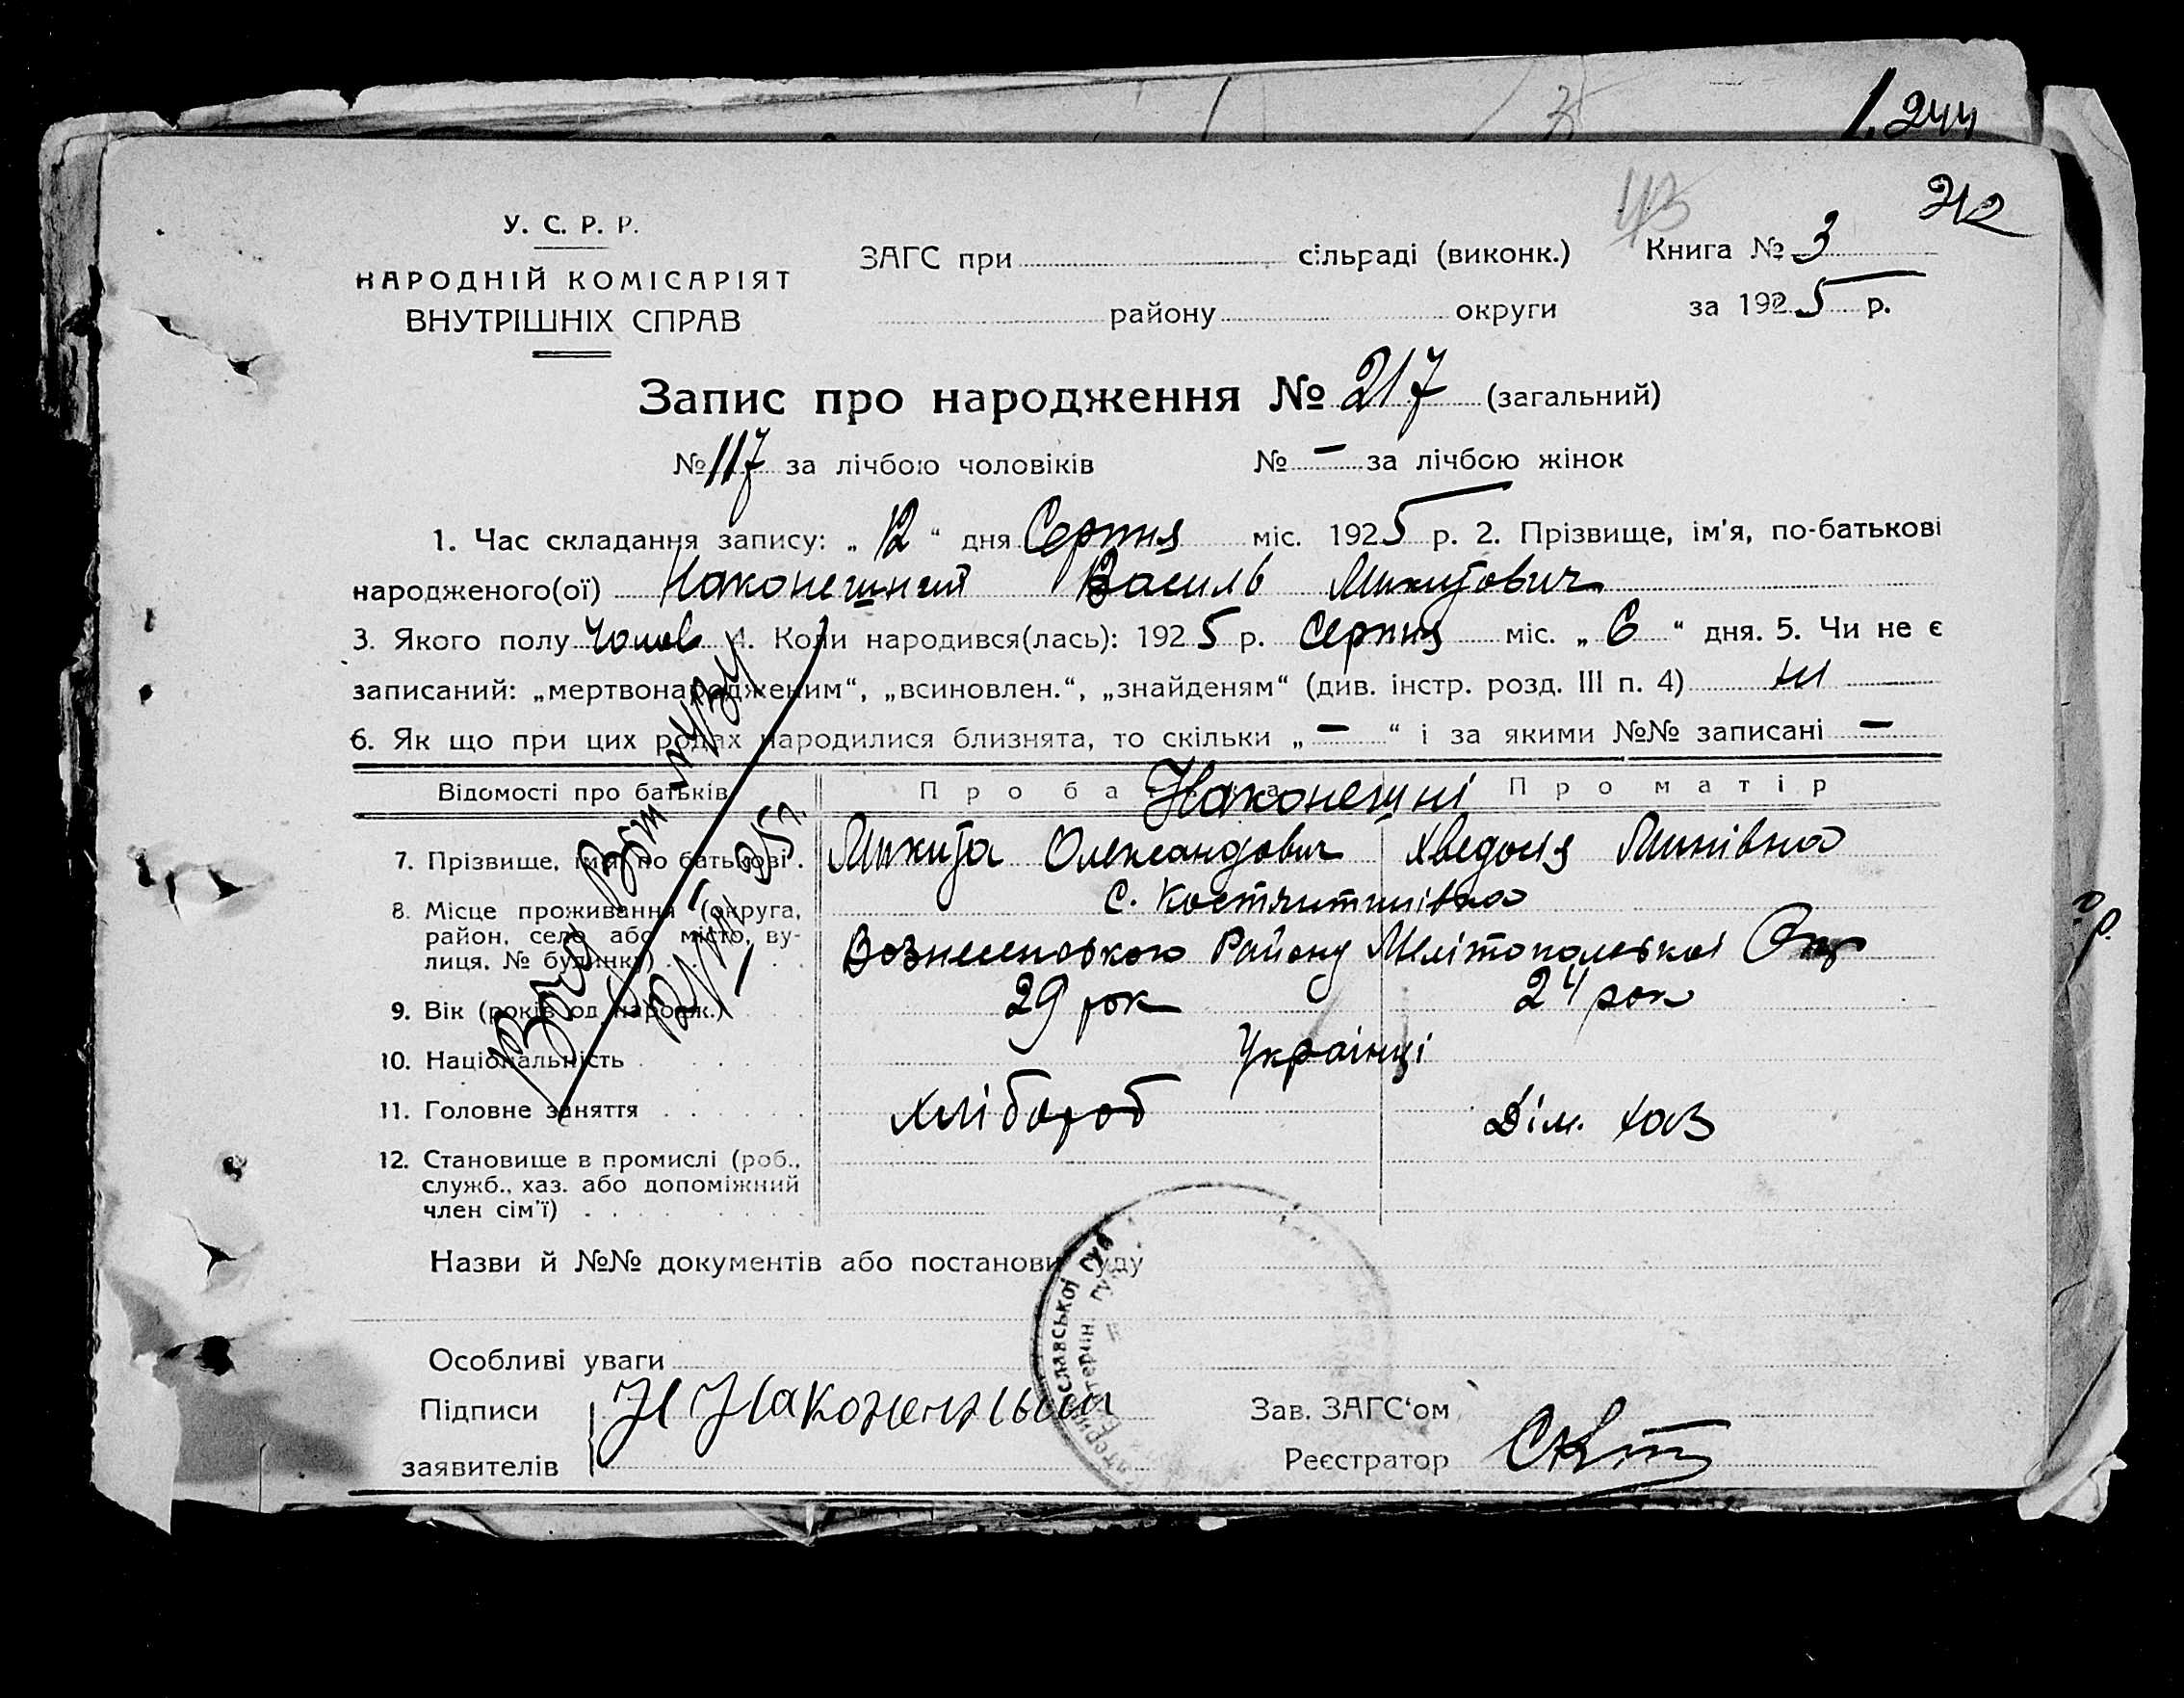 1.244
43
212
У. С. Р. Р.
НАРОДНІЙ КОМІСАРІЯТ
ВНУТРІШНІХ СПРАВ
ЗАГС при сільраді (виконк.)
району округи
Книга № 3
за 1925 р.
Запис про народження № 217 (загальний)
№ 117 за лічбою чоловіків № — за лічбою жінок
1. Час складання запису: „12“ дня Серпня міс. 1925 р. 2. Прізвище, ім'я, по-батькові
народженого(ої) Наконешний Василь Микитович
3. Якого полу Чолов 4. Коли народився(лась): 1925 р. Серпня міс. „6“ дня. 5. Чи не є
записаний: „мертвонародженим“, „всиновлен.“, „знайденям“ (див. інстр. розд. III п. 4) ні
6. Як що при цих родах народилися близнята, то скільки „—“ і за якими №№ записані —
Відомості про батьків Про батька Про матір
Наконешні
7. Прізвище, ім'я, по батькові. Микита Олександович Хведосія
8. Місце проживання (округа, район, село або місто, вулиця, № будинку) с. Костянтинівка
Вознесенського Району Мелітопольської Окр
9. Вік (років од народж.) 29 рок 24 рок
10. Національність Українці
11. Головне заняття Хлібороб Дім. хаз
12. Становище в промислі (роб.,
служб., хаз. або допоміжний
член сім'ї)
Назви й №№ документів або постанови суду
Особливі уваги
Підписи Н Наконечный
заявителів
Зав. ЗАГС'ом
Реєстратор